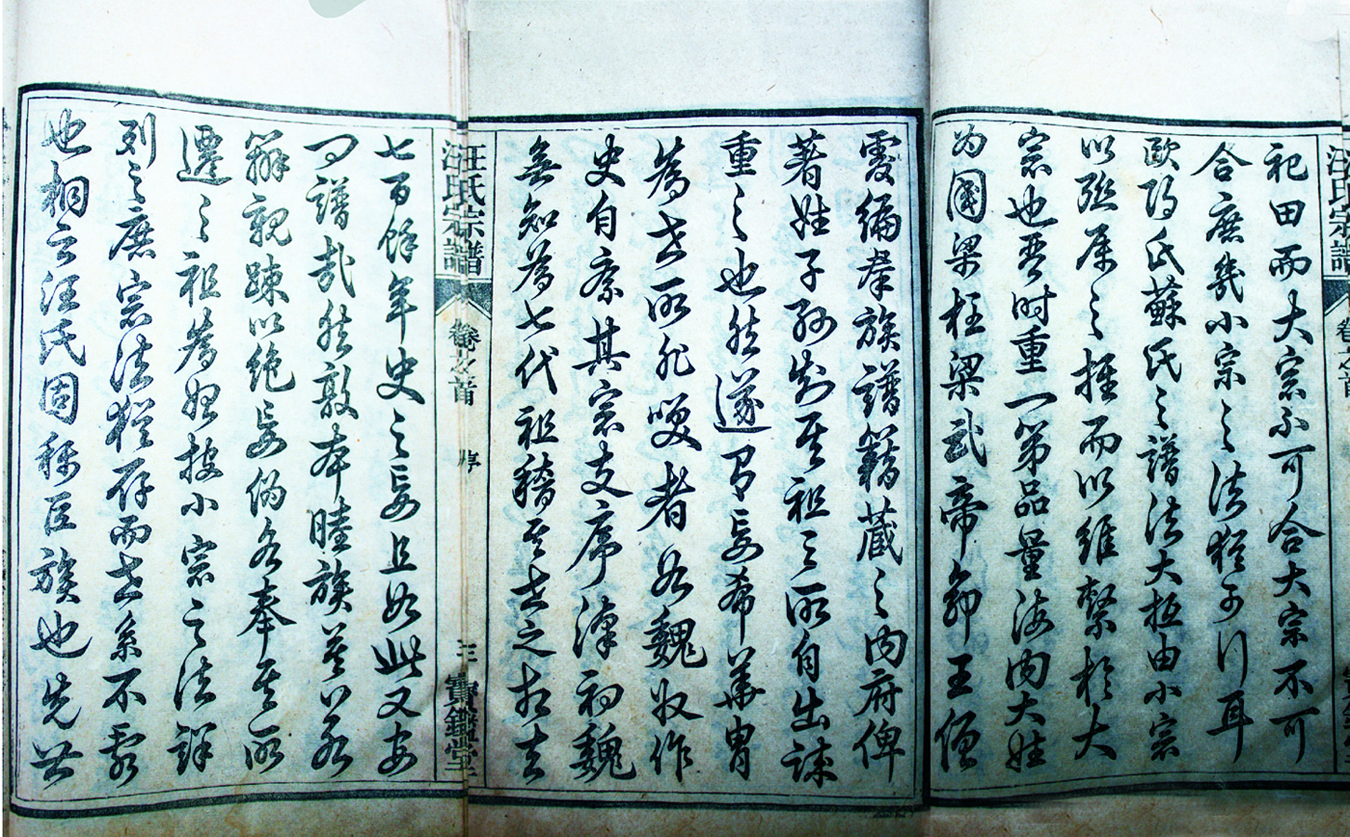 汪氏宗譜
祀田而大宗不可合大宗不可
合庶幾小宗之法猶可行耳
歐陽氏蘇氏之譜法大抵由小宗
以屬之推而以維繫於大
宗也晉时重一第品量海内大姓
为國梁梁武帝命王僧
虔編族譜籍藏之内府俾
著姓子孫知其祖之所自出誠
重之也然遂有妄希華胄
為世所非笑者如魏收作
史自序其宗支序漢初魏
無知為七代祖稽其世之相去
汪氏宗譜 卷之首 序 三 寶鑑堂
七百餘年史之妄且如此又安
问譜哉然敦本睦族莫以
辨親踈以絶妄偽各奉其所
遷之祖為始按小宗之法詳
列之庶宗法猶存而世系不紊
也桐云汪氏固称巨族也先世